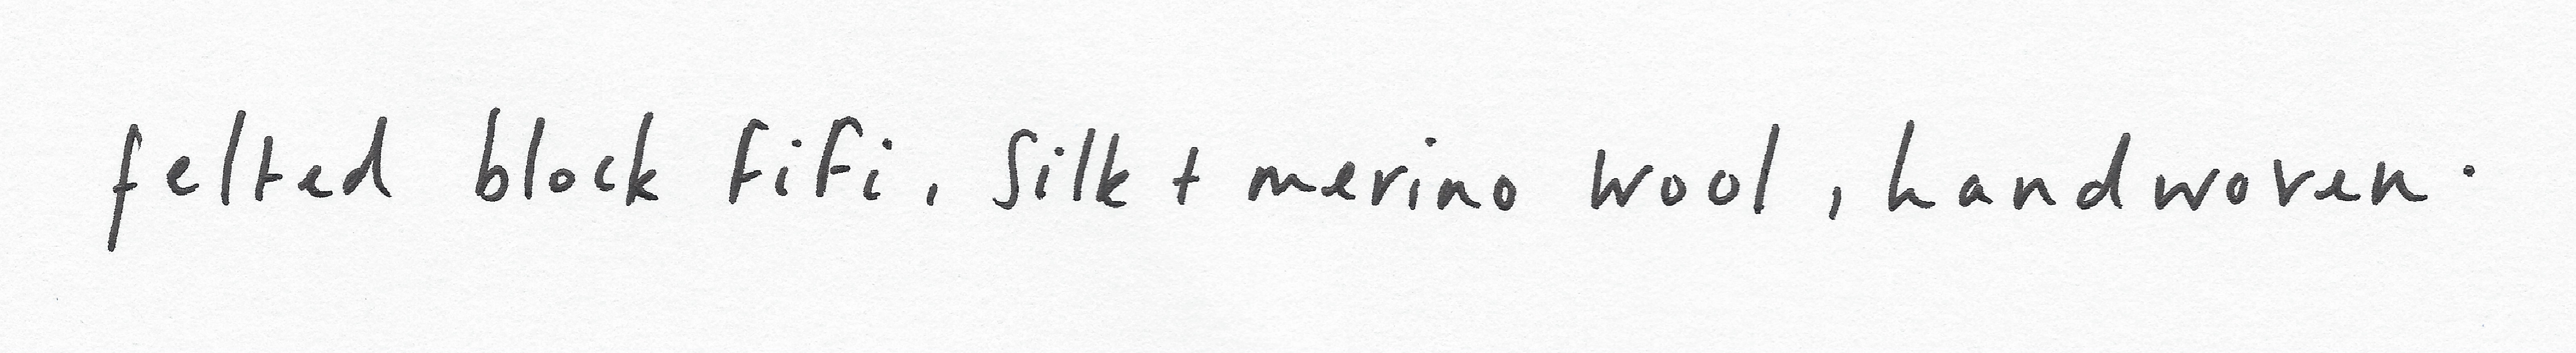 felted block fifi, silk + merino wool, handwoven.